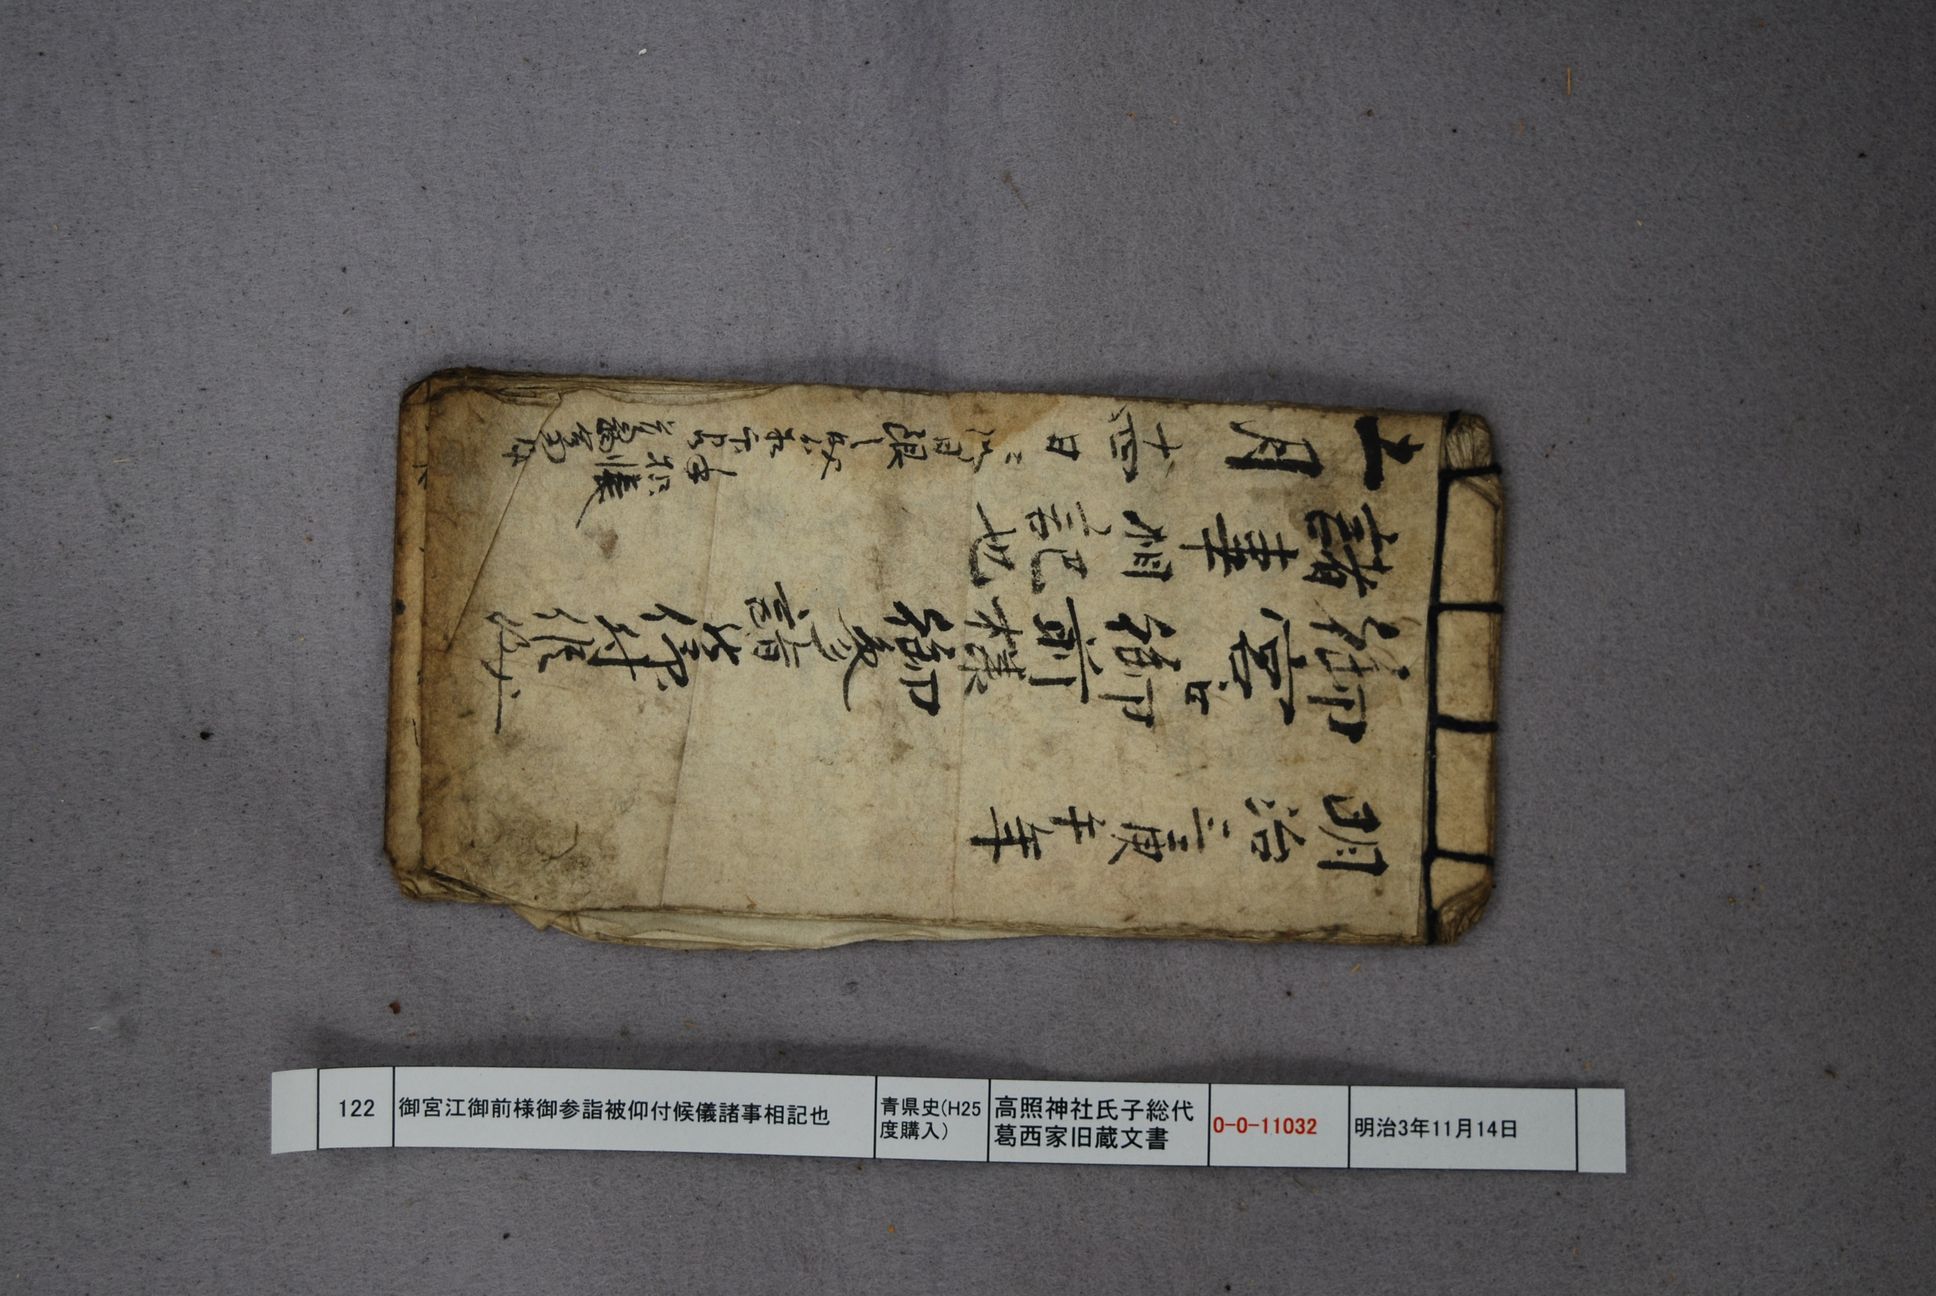 明治三庚午年
御宮江御前様御参詣被仰付候儀
諸事相記也
十一月十四日
122
御宮江御前様御参詣被仰付候儀諸事相記也
青県史(H25
度購入)
高照神社氏子総代
葛西家旧蔵文書
0-0-11032
明治3年11月14日